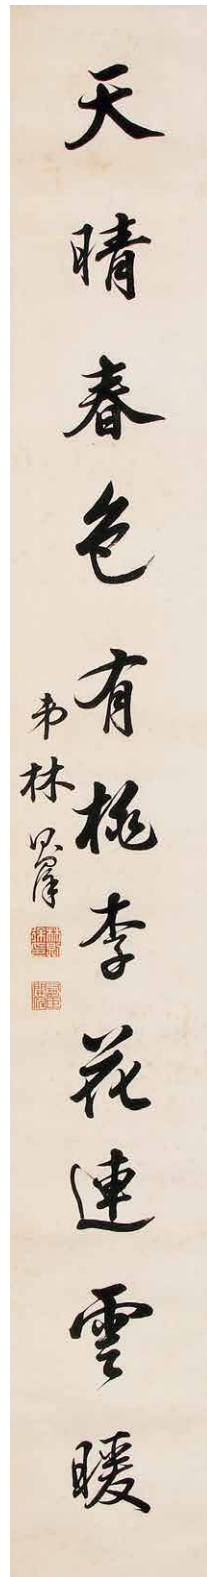 天晴春色有桃李花連雲暖
弟林